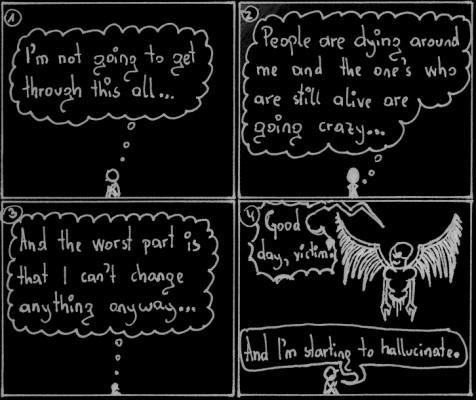 1
I'm not going to get
through this all...
2
People are dying around
me and the one's who
are still alive are
going crazy...
3
And the worst part is
that I can't change
anything anyway...
4
Good
day, victim.
And I'm starting to hallucinate.